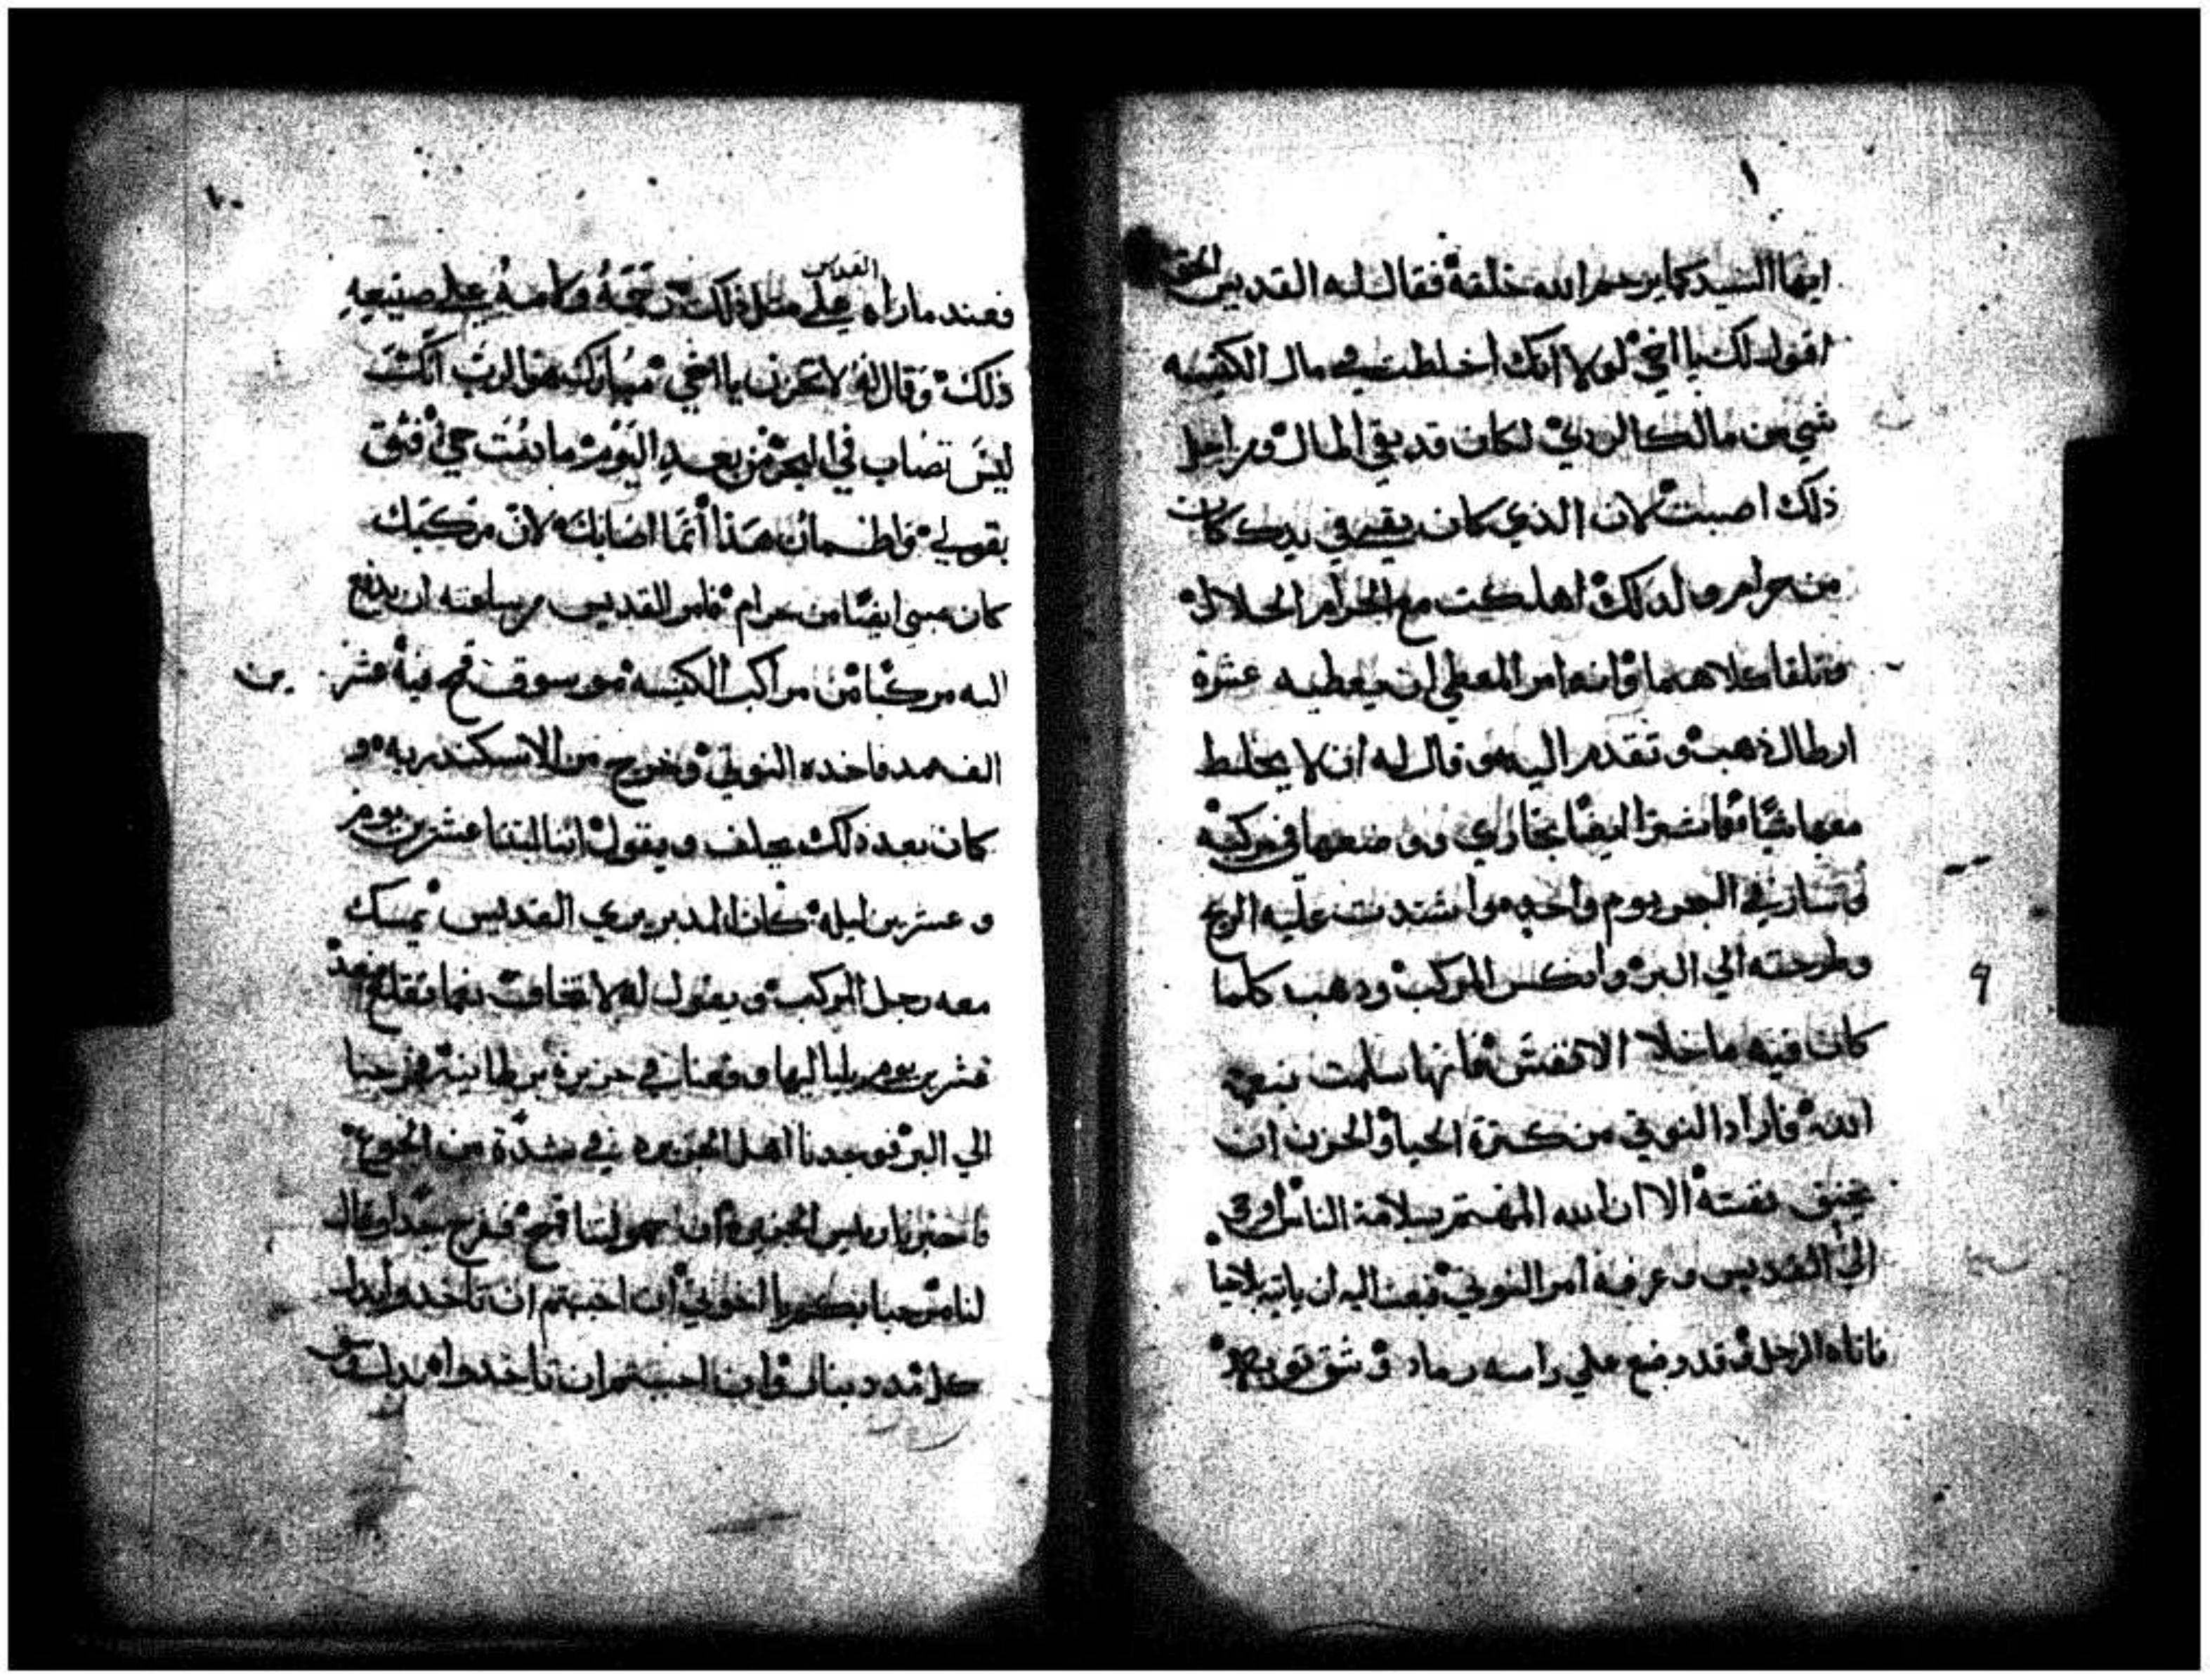 ايها السيد كما يرحم الله خلقة فقال له القديس الحق
اقول لك يا اخي لولا انك اخلطت في مال الكنيسه
شي من مالك الردي لكان قد بقي المال ومن اجل
ذلك اصبت لان الذي كان بقي في يدك كان
من حرام ولدلك اهلكت مع الحرام الحلال
وتلفا كلاهما وانه امر المعطي ان يعطيه عشرة
ارطال ذهب وتقدم اليه وقال له ان لا يخلط
معها شيا فاشترا ايضا تجاره ووضعها في مركبه
وسار في البحر يوم واحد واشتدت عليه الريح
وطرحته الي البر وانكسر المركب ودهب كلما
كان فيه ما خلا الانفس فانها سلمت بنعمة
الله فاراد النوتي من كترة الحيا والحزن ان
يخنق نفسه الا ان الله المهتم بسلامة الناس اوحى
الى القديس وعرفه امر النوتي فبعث اليه ان ياتيه
فاتاه الرجل وقد وضع علي راسه رماد وشق توبه
١٠
فعند ما راه القديس على مثل ذلك رحمه ولامه على صنيعه
ذلك وقال له لا تحزن يا اخي مبارك هو الرب انك
ليس تصاب في البحر من بعد اليوم ما دمت حي فثق
بقولي واطمان هذا انما اصابك لان مركبك
كان هي ايضا من حرام فامر القديس من ساعته ان يدفع
اليه مركبا من مراكب الكنيسه موسوق قمح فيه عشرين
الف مد فاخده النوتي وخرج من الاسكندريه و
كان بعد ذلك يحلف ويقول اننا لبتنا عشرين يوم
وعشرين ليله كان المدبر يري القديس يمسك
معه رجل المركب ويقول له لا تخاف نعما تقلع فبعد
عشرين يوم بلياليها وقعنا في جزيرة برطانية فخرجنا
الي البر فوجدنا اهل الجزيره في شدة من الجوع
فاخبرنا ريس الجزيره ان حمولتنا قمح ففرح جدا وقال
لنا مرحبا بكم يا اخوتي ان احببتم ان تاخدوا بدل
كل مد دينار وان احببتم ان تاخدوا بدل